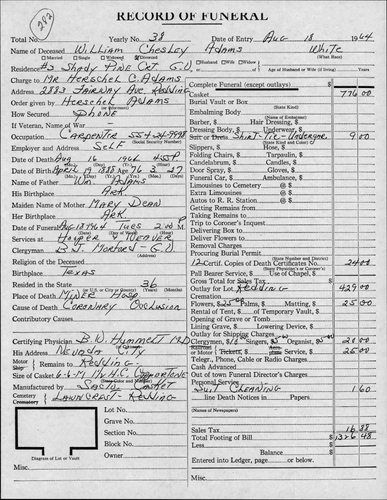 RECORD OF FUNERAL
282
Total No. Yearly No. 38 Date of Entry Aug 18 1964
Name of Deceased William Chesley Adams White
(What Race)
Married Single Widowed Divorced Husband Wife Widow
Residence #2 Shady Pine Crt G.V. Age of Husband or Wife (if living) Years
Charge to Mr Herschel C. Adams
Address 2883 Fairway Ave Redding
Order given by Herschel Adams
How Secured Phone
If Veteran, Name of War
Occupation Carpenter
(Social Security Number)
Employer and Address Self
Date of Death Aug 16 1964 4:55 P
Date of Birth April 19 1888 Age 76 3 27
Name of Father Wm Adams
His Birthplace Ark
Maiden Name of Mother Mary Dean
Her Birthplace Ark
Date of Funeral Aug 18 1964 Tues 2:00 P M.
Services at Hooper & Weaver
Clergyman B.T. Morford - G.V.
Religion of the Deceased
Birthplace Texas
Resided in the State 36
Place of Death Miner Hosp
Cause of Death Coronary Occlusion
Contributory Causes
Certifying Physician B.W. Hummelt MD
His Address Nevada City
Motor Ship Remains to Redding
Size of Casket 6-6-M
Manufactured by Sacto Casket
Cemetery Crematory Lawncrest - Redding
Lot No.
Grave No.
Section No.
Block No.
Owner
Diagram of Lot or Vault
Misc.
Complete Funeral (except outlays) $
Casket 776 00
Burial Vault or Box
(State Kind)
Embalming Body
Barber, $ Hair Dressing, $
Dressing Body, $ Underwear, $
Suit or Dress Shirt-Tie-Underwear 9 00
(State Kind and Color)
Slippers, $ Hose, $
Folding Chairs, $ Tarpaulin, $
Candelabrum, $ Candles, $
Door Spray, $ Gloves, $
Funeral Car, $ Ambulance, $
Limousines to Cemetery @ $
Extra Limousines @ $
Autos to R. R. Station @ $
Getting Remains from
Taking Remains to
Trip to Coroner's Inquest
Delivering Box to
Deliver Flowers to
Removal Charges
Procuring Burial Permit
(State Number and District)
12 Certif. Copies of Death Certificates No. 24 00
(State Physician's or Coroner's)
Pall Bearer Service, $ Use of Chapel, $
Gross Total for Sales Tax $
Outlay for Lot Redding 429 00
Cremation
Flowers, $ 25.00 Palms, $ Matting, $ 25 00
Rental of Tent, $ of Temporary Vault, $
Opening of Grave or Tomb
Lining Grave, $ Lowering Device, $
Outlay for Shipping Charges
Clergyman, $ Singers, $ Organist, $
or Motor Tickets, $ Service, $
Telegr., Phone, Cable or Radio Charges
Cash Advanced
Out of town Funeral Director's Charges
Personal Service
Suit Cleaning 1 60
line Death Notices in Papers
(Names of Newspapers)
Sales Tax
Total Footing of Bill $ 1326 48
Less
Balance $
Entered into Ledger, page or below.
Misc.